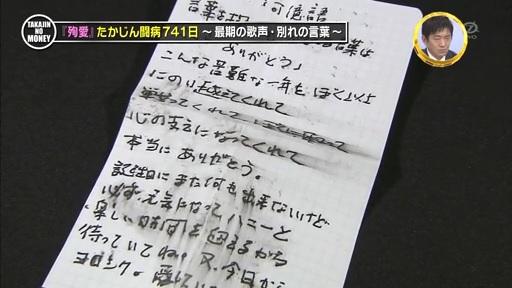 TAKAJIN NO MONEY
『殉愛』たかじん闘病741日 ～最期の歌声・別れの言葉～
何億語
言葉は
ありがとう」
こんな苦難な一年をぼく以上
にのり越えてくれて
心の支えになってくれて
本当にありがとう。
誕生日にまだ何も出来ないけど
必ず元気になってハニーと
楽しい時間を
待っていてね。又、今日から
ヨロシク。愛してい